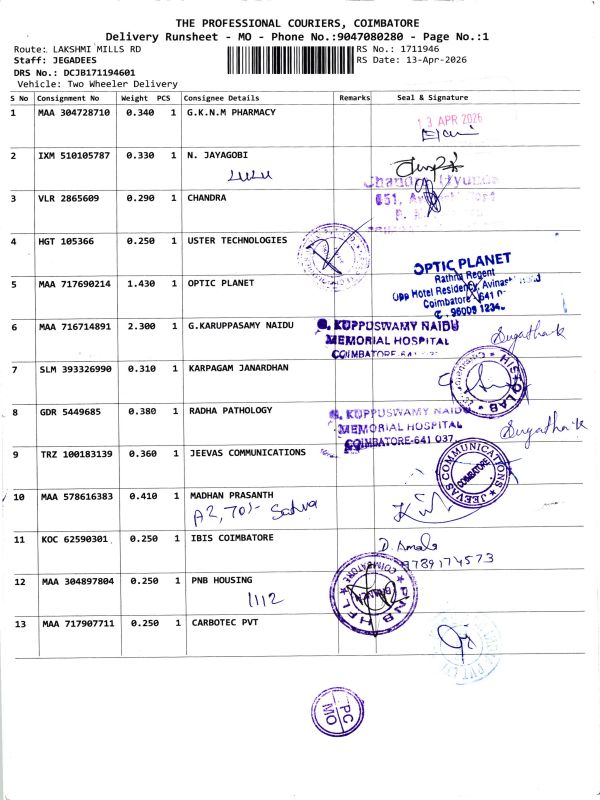 THE PROFESSIONAL COURIERS, COIMBATORE
Delivery Runsheet - MO - Phone No.:9047080280 - Page No.:1
Route: LAKSHMI MILLS RD RS No.: 1711946
Staff: JEGADEES RS Date: 13-Apr-2026
DRS No.: DCJB171194601
Vehicle: Two Wheeler Delivery
S No Consignment No Weight PCS Consignee Details Remarks Seal & Signature
1 MAA 304728710 0.340 1 G.K.N.M PHARMACY
13 APR 2026
2 IXM 510105787 0.330 1 N. JAYAGOBI
3 VLR 2865609 0.290 1 CHANDRA
4 HGT 105366 0.250 1 USTER TECHNOLOGIES
5 MAA 717690214 1.430 1 OPTIC PLANET
OPTIC PLANET
Rathna Regent
Opp Hotel Residency, Avinashi
Coimbatore 641
6 MAA 716714891 2.300 1 G.KARUPPASAMY NAIDU
G. KUPPUSWAMY NAIDU
MEMORIAL HOSPITAL
Sugathak
7 SLM 393326990 0.310 1 KARPAGAM JANARDHAN
HISTOLAB
8 GDR 5449685 0.380 1 RADHA PATHOLOGY
G. KUPPUSWAMY NAIDU
MEMORIAL HOSPITAL
COIMBATORE-641 037
Sugathak
9 TRZ 100183139 0.360 1 JEEVAS COMMUNICATIONS
JEEVAS COMMUNICATIONS
COIMBATORE
10 MAA 578616383 0.410 1 MADHAN PRASANTH
11 KOC 62590301 0.250 1 IBIS COIMBATORE
D. Amala
9789174573
12 MAA 304897804 0.250 1 PNB HOUSING
1112
PNB HFL
COIMBATORE
BRANCH
13 MAA 717907711 0.250 1 CARBOTEC PVT
PC
MO